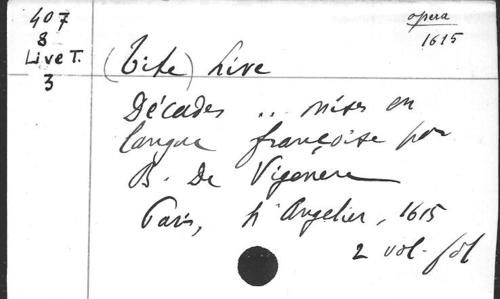 407
8
Live T.
3
opera
1615
(Tite) Live
Décades .. mises en
langue françoise par
B. De Vigenere
Paris, L'Angelier, 1615
2 vol. fol